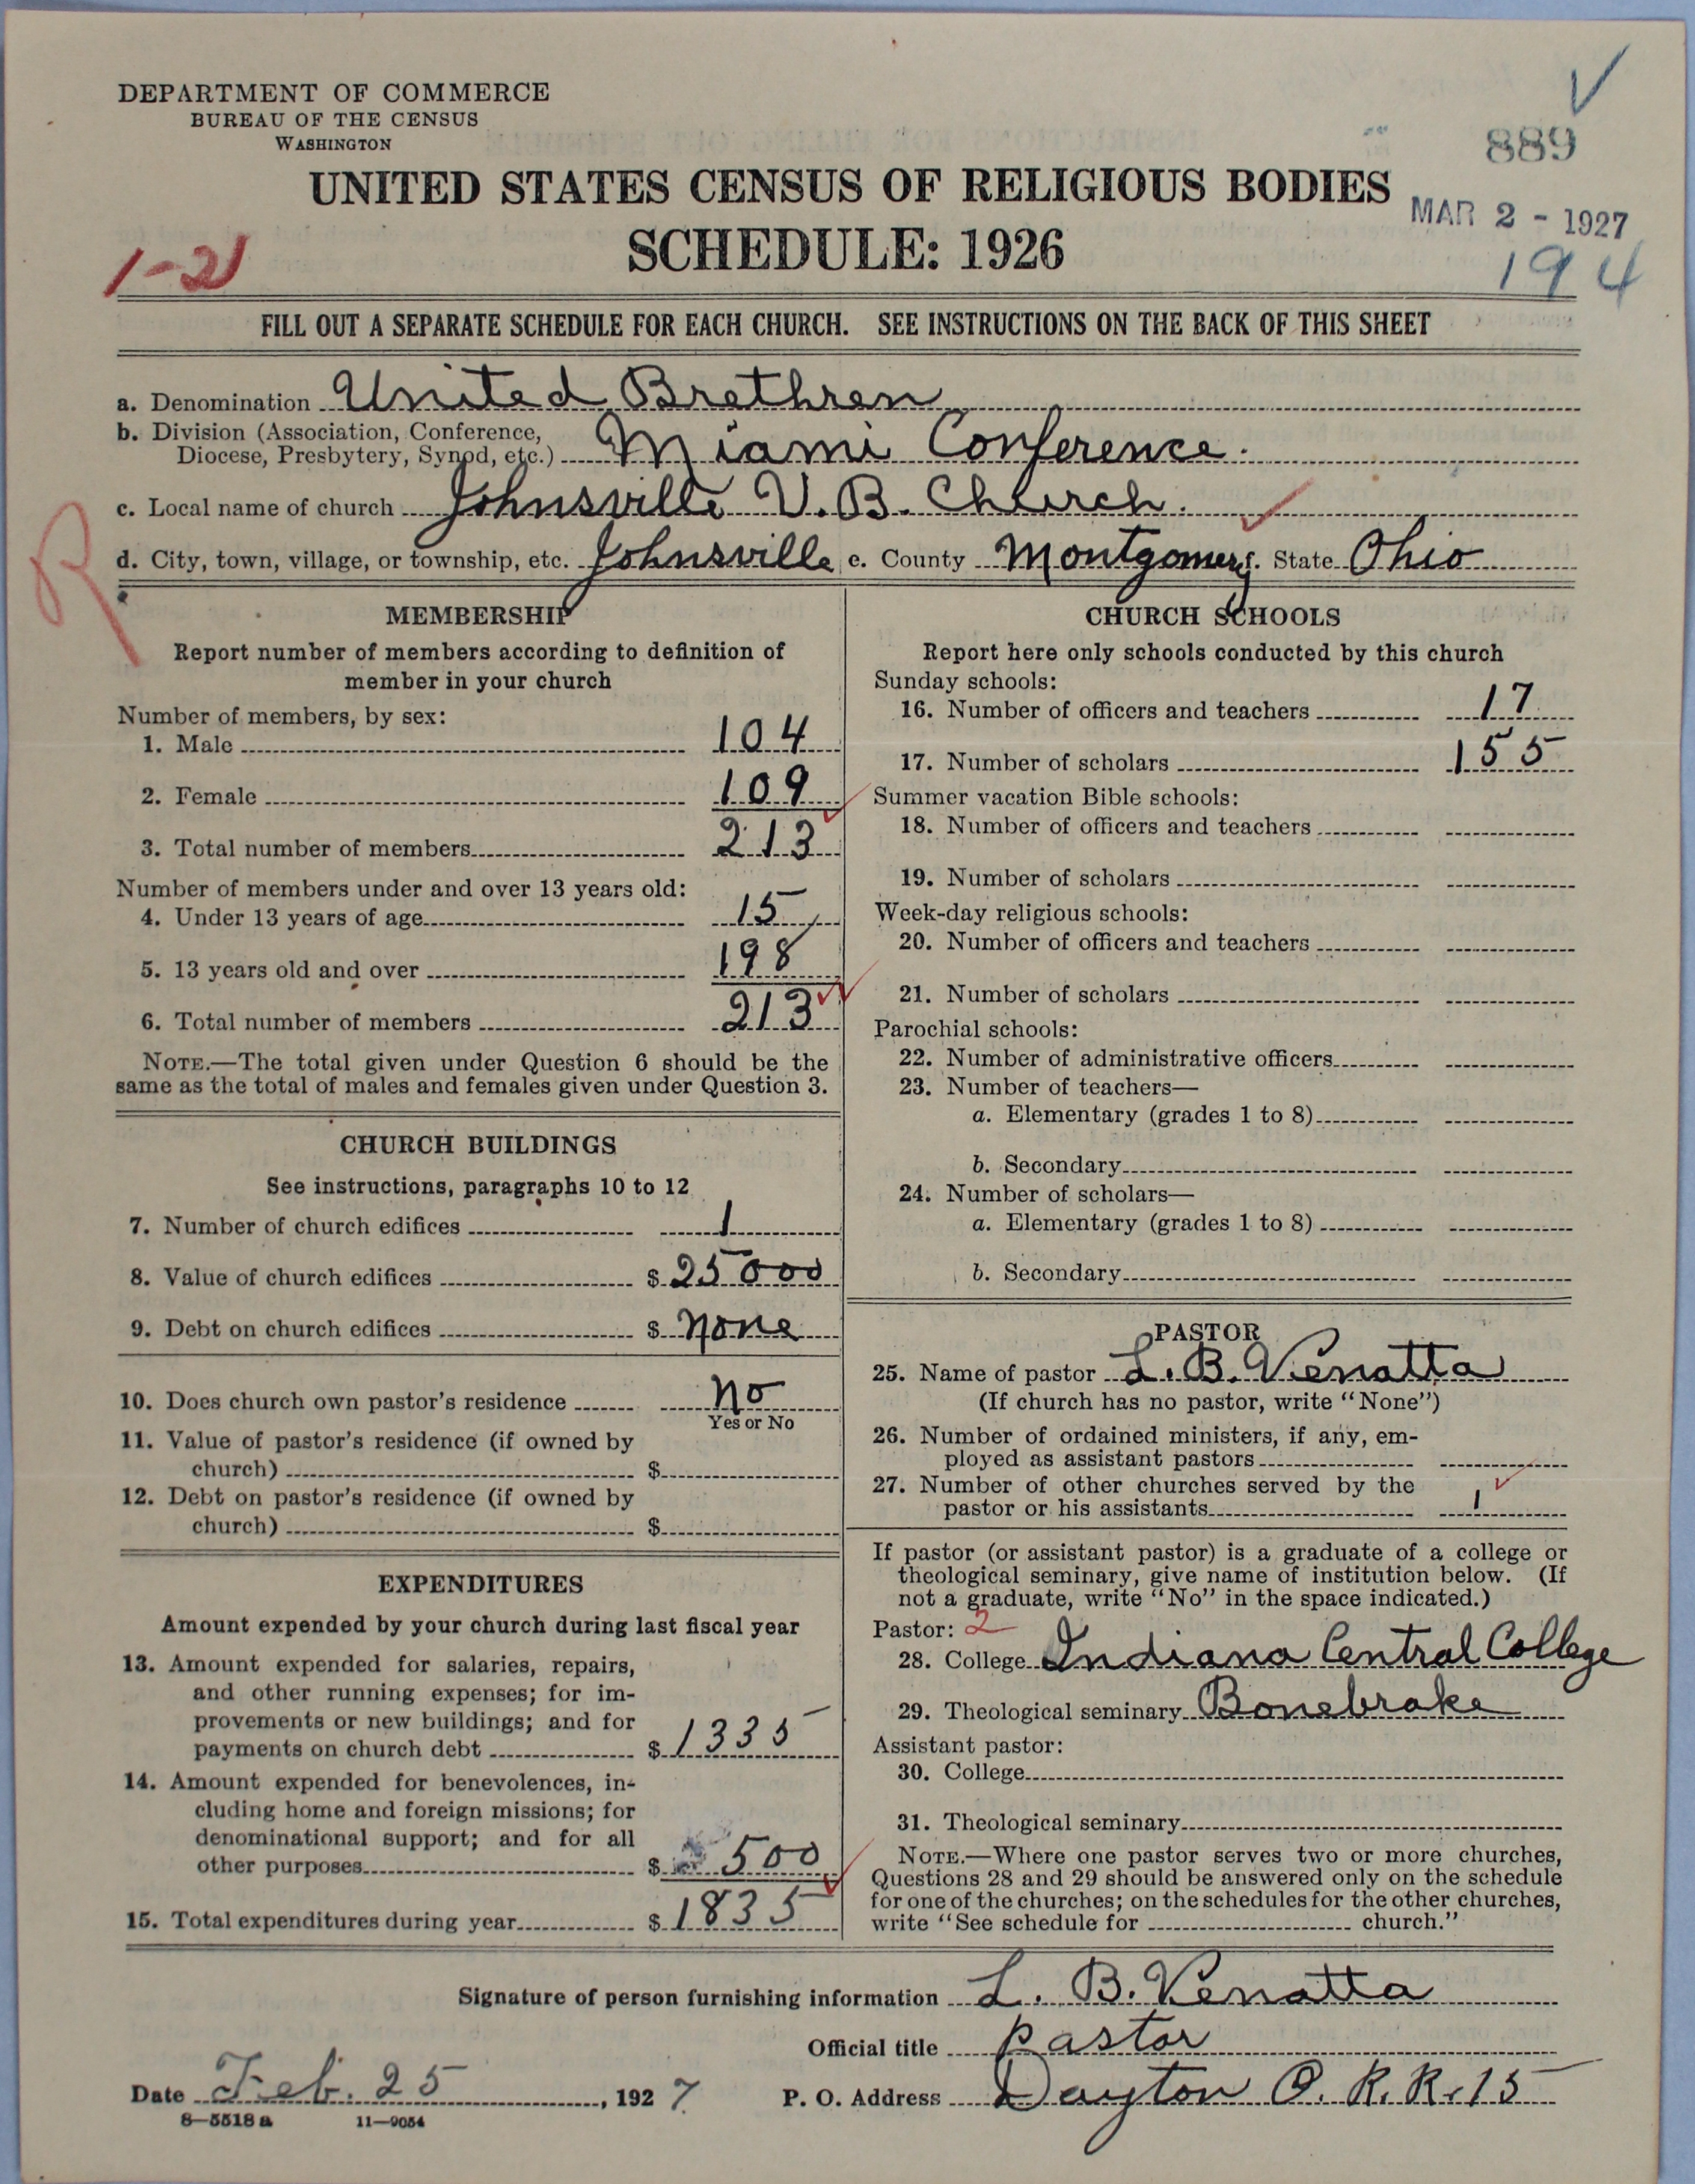 DEPARTMENT OF COMMERCE
BUREAU OF THE CENSUS
WASHINGTON
889
UNITED STATES CENSUS OF RELIGIOUS BODIES
MAR 2 - 1927
SCHEDULE: 1926
1-21
194
FILL OUT A SEPARATE SCHEDULE FOR EACH CHURCH. SEE INSTRUCTIONS ON THE BACK OF THIS SHEET
a. Denomination United Brethren
b. Division (Association, Conference,
Diocese, Presbytery, Synod, etc.) Miami Conference.
c. Local name of church Johnsville U.B. Church.
R
d. City, town, village, or township, etc. Johnsville e. County Montgomery. State Ohio
MEMBERSHIP
Report number of members according to definition of
member in your church
Number of members, by sex:
1. Male 104
2. Female 109
3. Total number of members 213
Number of members under and over 13 years old:
4. Under 13 years of age 15
5. 13 years old and over 198
6. Total number of members 213
NOTE.—The total given under Question 6 should be the
same as the total of males and females given under Question 3.
CHURCH BUILDINGS
See instructions, paragraphs 10 to 12
7. Number of church edifices 1
8. Value of church edifices $ 25000
9. Debt on church edifices $ none
10. Does church own pastor's residence no
Yes or No
11. Value of pastor's residence (if owned by
church) $
12. Debt on pastor's residence (if owned by
church) $
EXPENDITURES
Amount expended by your church during last fiscal year
13. Amount expended for salaries, repairs,
and other running expenses; for im-
provements or new buildings; and for
payments on church debt $ 1335
14. Amount expended for benevolences, in-
cluding home and foreign missions; for
denominational support; and for all
other purposes $ 500
15. Total expenditures during year $ 1835
CHURCH SCHOOLS
Report here only schools conducted by this church
Sunday schools:
16. Number of officers and teachers 17
17. Number of scholars 155
Summer vacation Bible schools:
18. Number of officers and teachers
19. Number of scholars
Week-day religious schools:
20. Number of officers and teachers
21. Number of scholars
Parochial schools:
22. Number of administrative officers
23. Number of teachers—
a. Elementary (grades 1 to 8)
b. Secondary
24. Number of scholars—
a. Elementary (grades 1 to 8)
b. Secondary
PASTOR
25. Name of pastor L. B. Venatta
(If church has no pastor, write "None")
26. Number of ordained ministers, if any, em-
ployed as assistant pastors
27. Number of other churches served by the
pastor or his assistants 1
If pastor (or assistant pastor) is a graduate of a college or
theological seminary, give name of institution below. (If
not a graduate, write "No" in the space indicated.)
Pastor: 2
28. College Indiana Central College
29. Theological seminary Bonebrake
Assistant pastor:
30. College
31. Theological seminary
NOTE.—Where one pastor serves two or more churches,
Questions 28 and 29 should be answered only on the schedule
for one of the churches; on the schedules for the other churches,
write "See schedule for church."
Signature of person furnishing information L. B. Venatta
Official title pastor
Date Feb. 25, 1927 P. O. Address Dayton O. R. R. 15
8—5518 a 11—9054